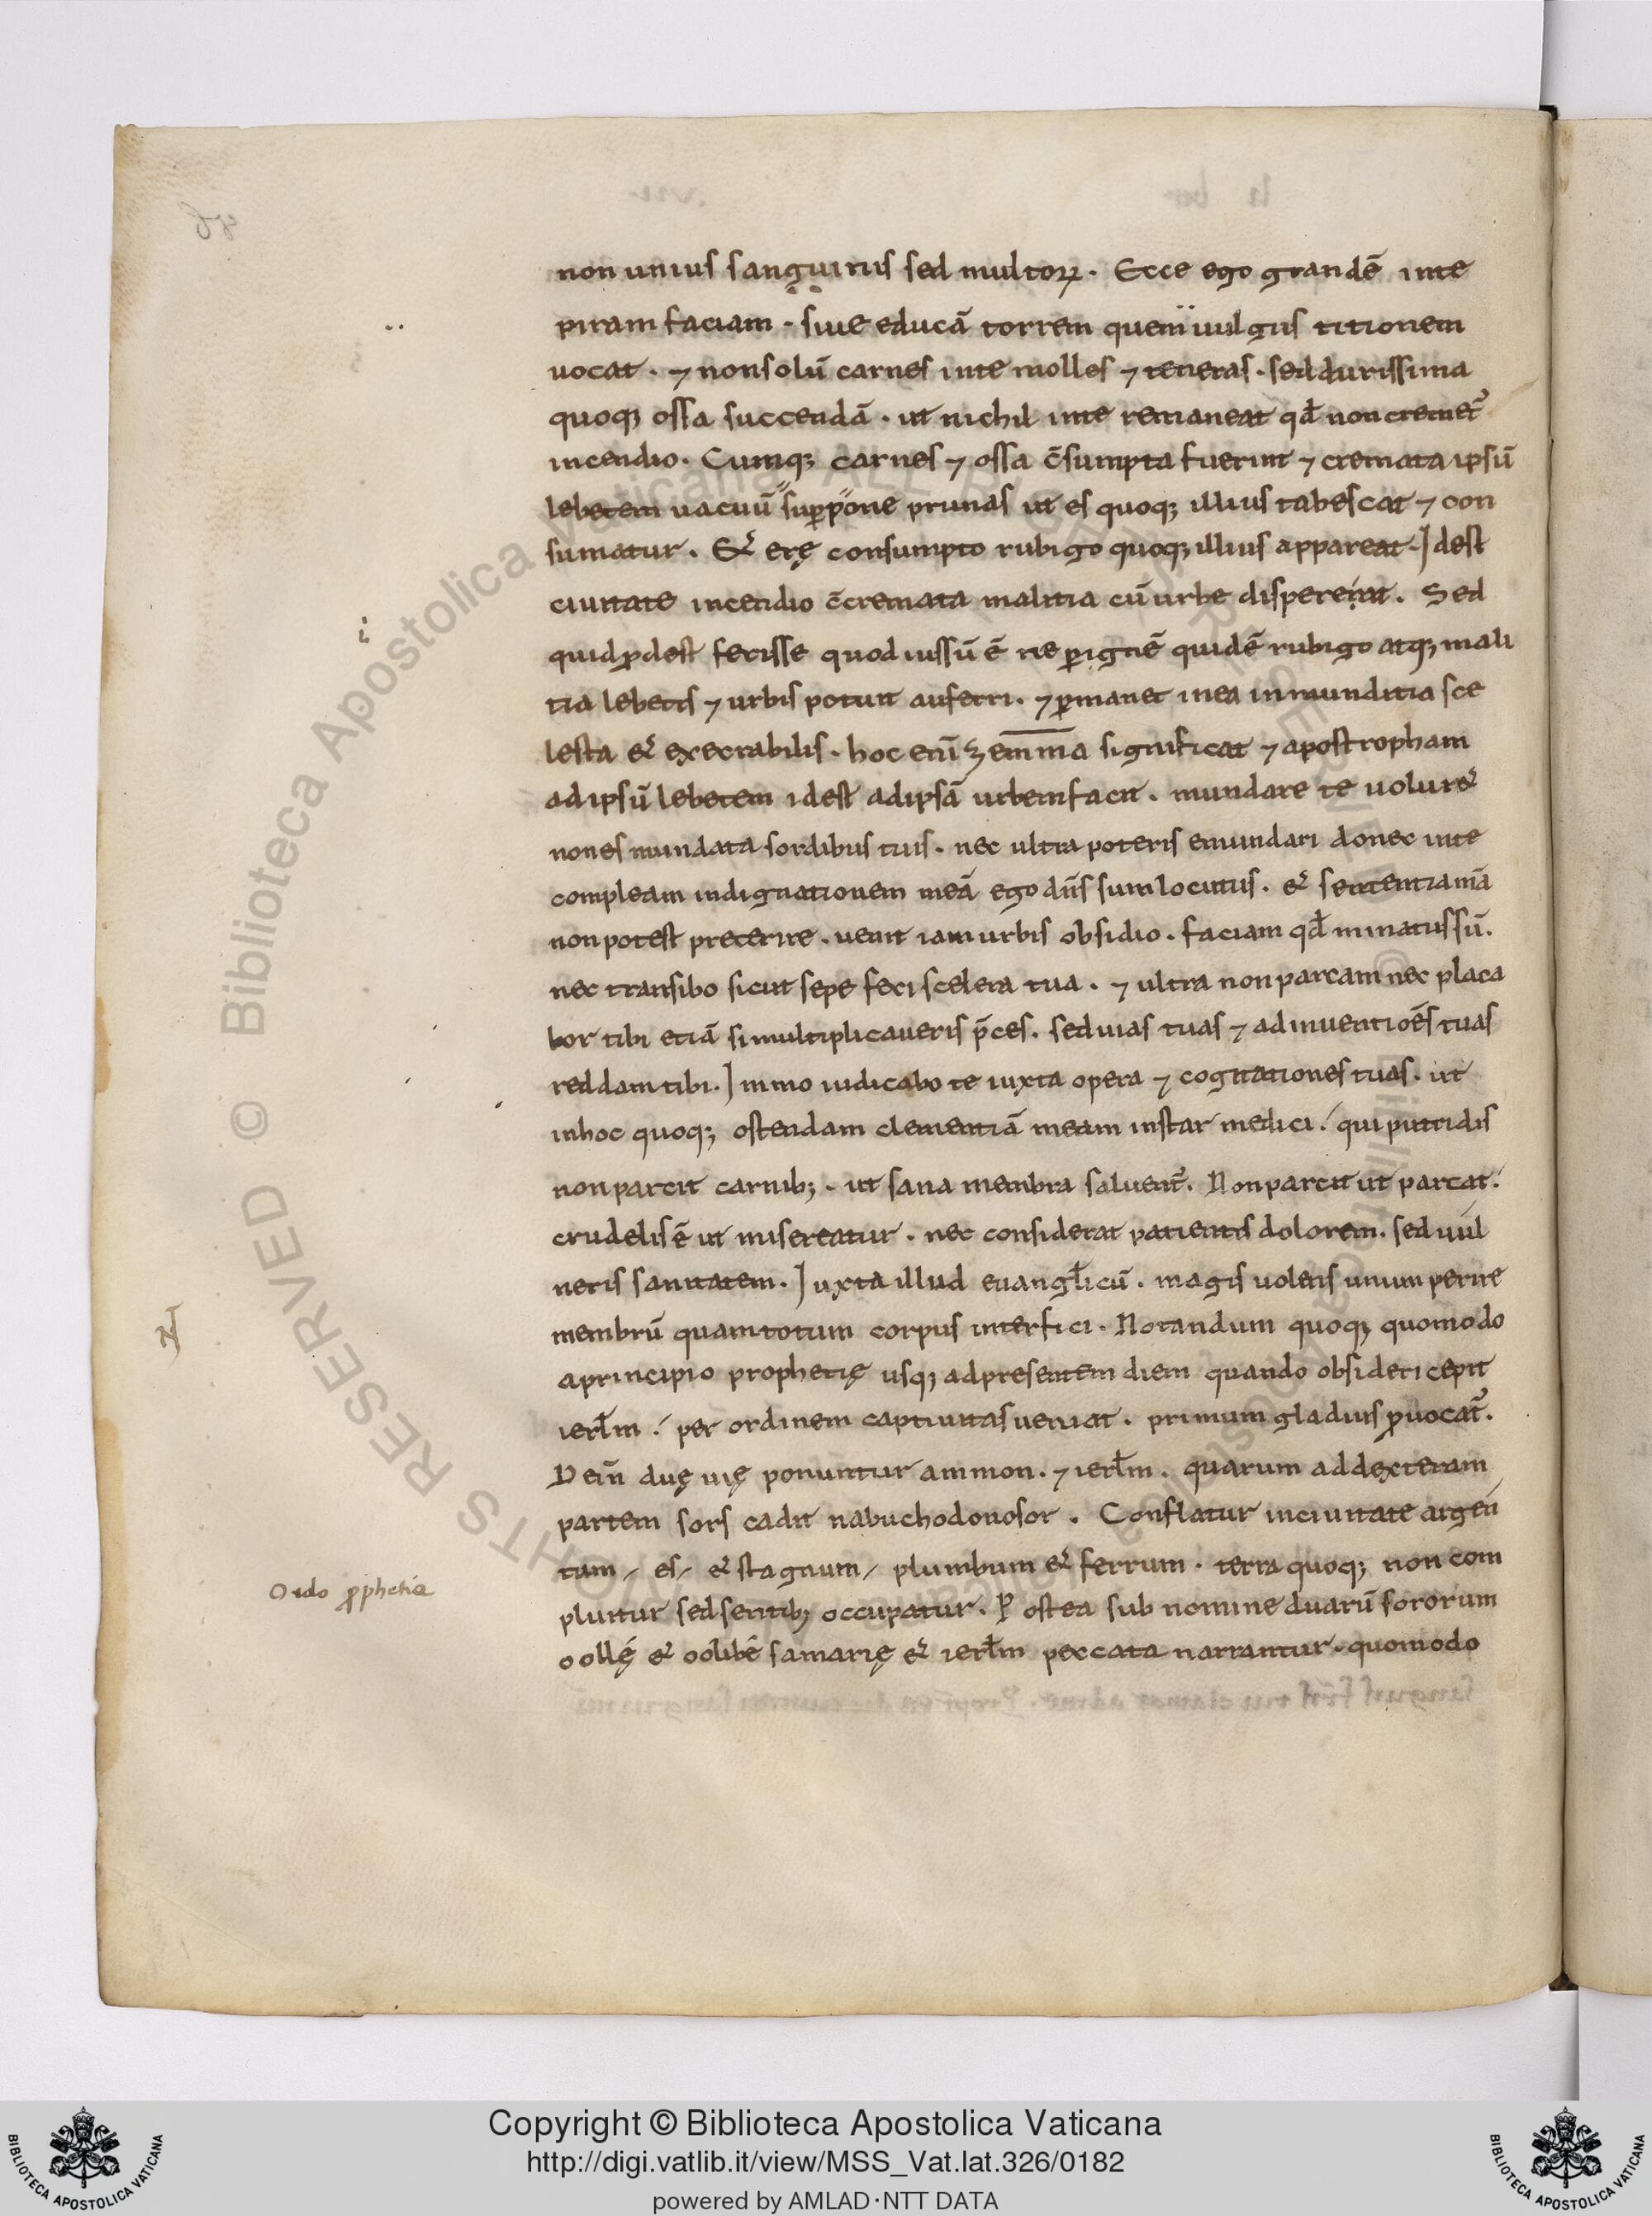 non unius sanguinis sed multoꝝ. Ecce ego grandē inte
piram faciam. siue educā torrem quem uulgus titionem
uocat. ⁊ nonsolū carnes inte molles ⁊ teneras. sed durissima
quoq; ossa succendā. ut nichil inte remaneat qđ non cremet᷑
incendio. Cumq; carnes ⁊ ossa c̄sumpta fuerint ⁊ cremata ipsū
lebetem uacuū suꝑpone prunas ut es quoq; illius tabescat ⁊ con
sumatur. & erę consumpto rubigo quoq; illius appareat. Idest
ciuitate incendio c̄cremata malitia cū urbe dispereat. Sed
quid ꝓdest fecisse quod iussū ē ne ꝑ ignē quidē rubigo atq; mali
tia lebetis ⁊ urbis potuit auferri. ⁊ ꝑmanet inea inmunditia sce
lesta & execrabilis. hoc enī zem̄m̄a significat ⁊ apostropham
ad ipsū lebetem idest adipsā urbem facit. mundare te uolui &
non es mundata sordibus tuis. nec ultra poteris emundari donec inte
compleam indignationem meā ego dn̄s sum locutus. & sententia m̄a
non potest preterire. uenit iam urbis obsidio. faciam qđ minatus sū.
nec transibo sicut sepe feci scelera tua. ⁊ ultra non parcam nec placa
bor tibi etiā si multiplicaueris p̄ces. sed uias tuas ⁊ adinuentiōes tuas
reddam tibi. Immo iudicabo te iuxta opera ⁊ cogitationes tuas. ut
inhoc quoq; ostendam clementiā meam instar medici. qui putridis
non parcit carnib;. ut sana membra saluent᷑. Non parcit ut parcat.
crudelis ē ut misereatur. nec considerat patientis dolorem. sed uul
neris sanitatem. Iuxta illud euangl̄icū. magis uolens unum perire
membrū quam totum corpus interfici. Notandum quoq; quomodo
aprincipio prophetię usq; adpresentem diem quando obsideri cepit
ierl̄m. per ordinem captiuitas ueniat. primum gladius ꝓuocat᷑.
Dein̄ duę uię ponuntur ammon. ⁊ ierl̄m. quarum addexteram
partem sors cadit nabuchodonosor. Conflatur inciuitate argen
tum, es, & stagnum, plumbum & ferrum. terra quoq; non com
pluitur sed sentib; occupatur. Postea sub nomine duarū sororum
oollę & oolibę samarię & ierl̄m peccata narrantur. quomodo
Ordo ꝓphetiæ
Copyright © Biblioteca Apostolica Vaticana
http://digi.vatlib.it/view/MSS_Vat.lat.326/0182
powered by AMLAD·NTT DATA